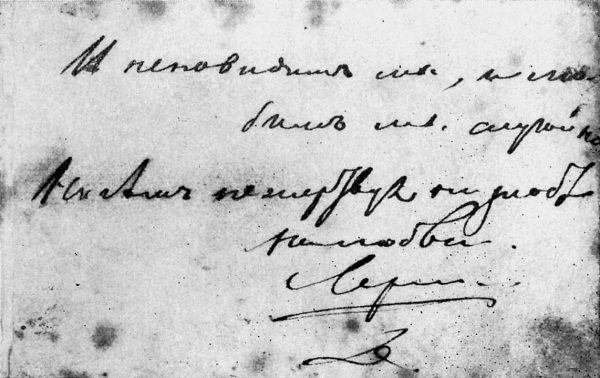 И неновидимъ мы, и лю-
бимъ мы. случайно
не жертвуя ни злобѣ
ни любви.
Лерм.